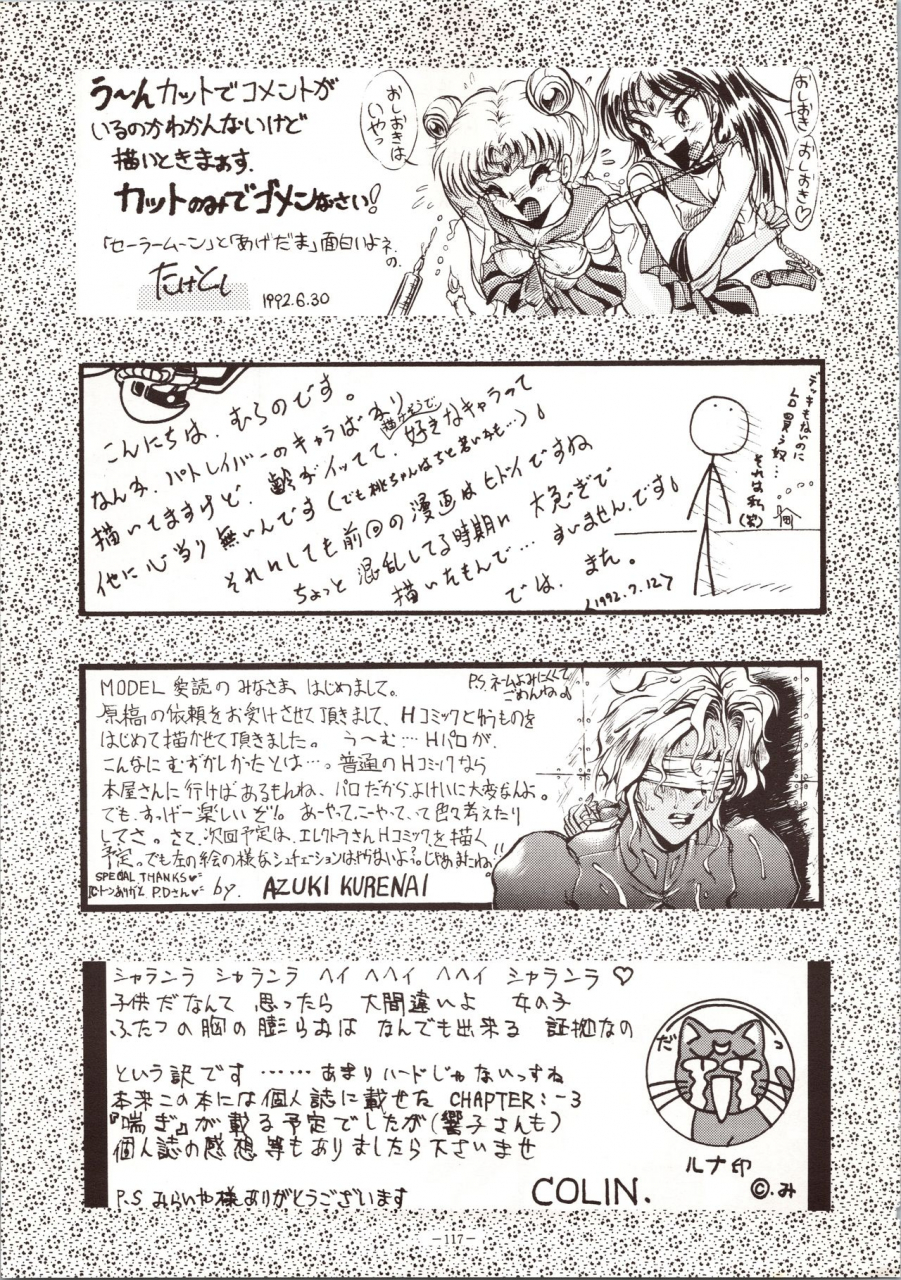 う～んカットでコメントが
いるのかわかんないけど
描いときまぁす.
カットのみでゴメンなさい!
「セーラームーン」と「あげだま」面白いよネ.
の.
たけとし
1992.6.30
おしおきは
いやっ
おしおき
おしおき♡
こんにちは、むらのです。
なんか、パトレイバーのキャラばかり
描いてますけど、齢がイッてて、描けそうで、好きなキャラって
他に心当り無いんです(でも桃ちゃんはちと若いかも…)。
それにしても前回の漫画はヒドイですね
ちょっと混乱してる時期に大急ぎで
描いたもんで… すいませんです。
では、また。
(1992.7.12)
デッキもないのに
LD買う奴…
それは私(笑)
MODEL 愛読のみなさま、はじめまして。
原稿の依頼をお受けさせて頂きまして、Hコミックとゆうものを
はじめて描かせて頂きました。う～む…Hパロが、
こんなにむずかしかったとは…。普通のHコミックなら
本屋さんに行けばあるもんね、パロだからよけいに大変なんよ。
でも、すっげー楽しいぞ!。あーやって、こーやって、って色々考えたり
してさ。さて、次回予定は、エレクトラさんHコミックを描く
予定。でも左の絵の様なシュチュエーションはやらないよ?。じゃあまたね!!
SPECIAL THANKS♡
トーンありがと P.Dさん♡
by. AZUKI KURENAI
P.S. ネームよみにくくて
ごめんね♪
シャランラ シャランラ ヘイ ヘヘイ ヘヘイ シャランラ♡
子供だなんて 思ったら 大間違いよ 女の子
ふたつの胸の膨らみは なんでも出来る 証拠なの
という訳です ……あまりハードじゃないっすね
本来この本には個人誌に載せた CHAPTER:-3
『喘ぎ』が載る予定でしたが(響子さんも)
個人誌の感想等もありましたら下さいませ
P.S みらいや様ありがとうございます
COLIN.
だ
っ
ルナ印
©.み
-117-